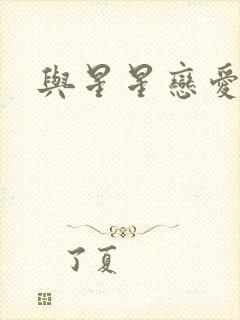 與星星戀愛
了夏